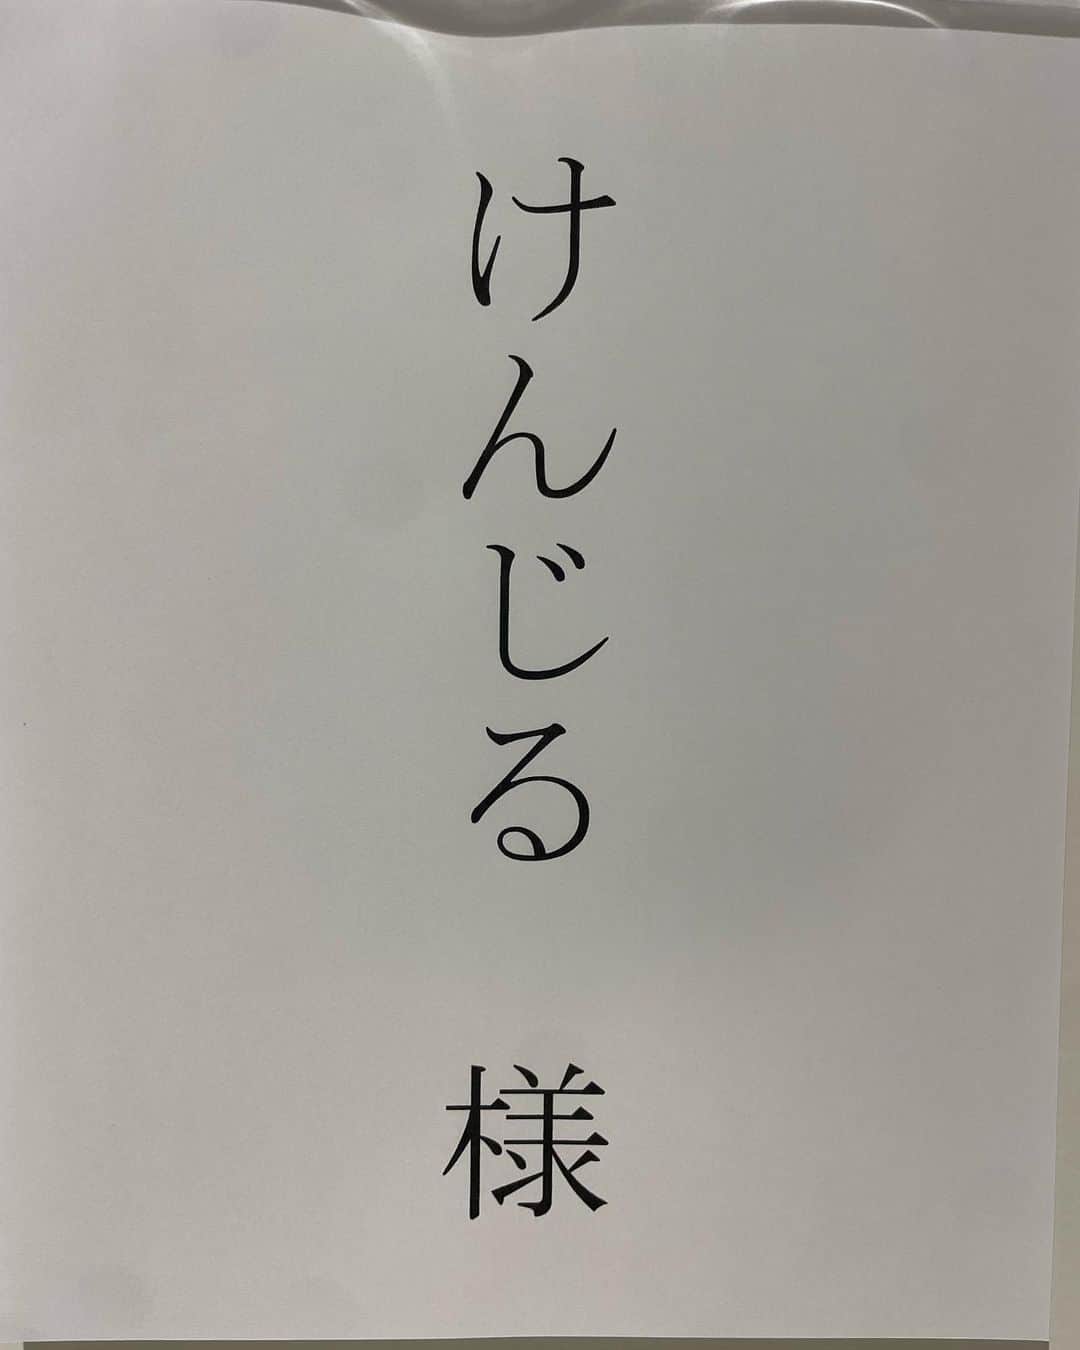 けんじる　様